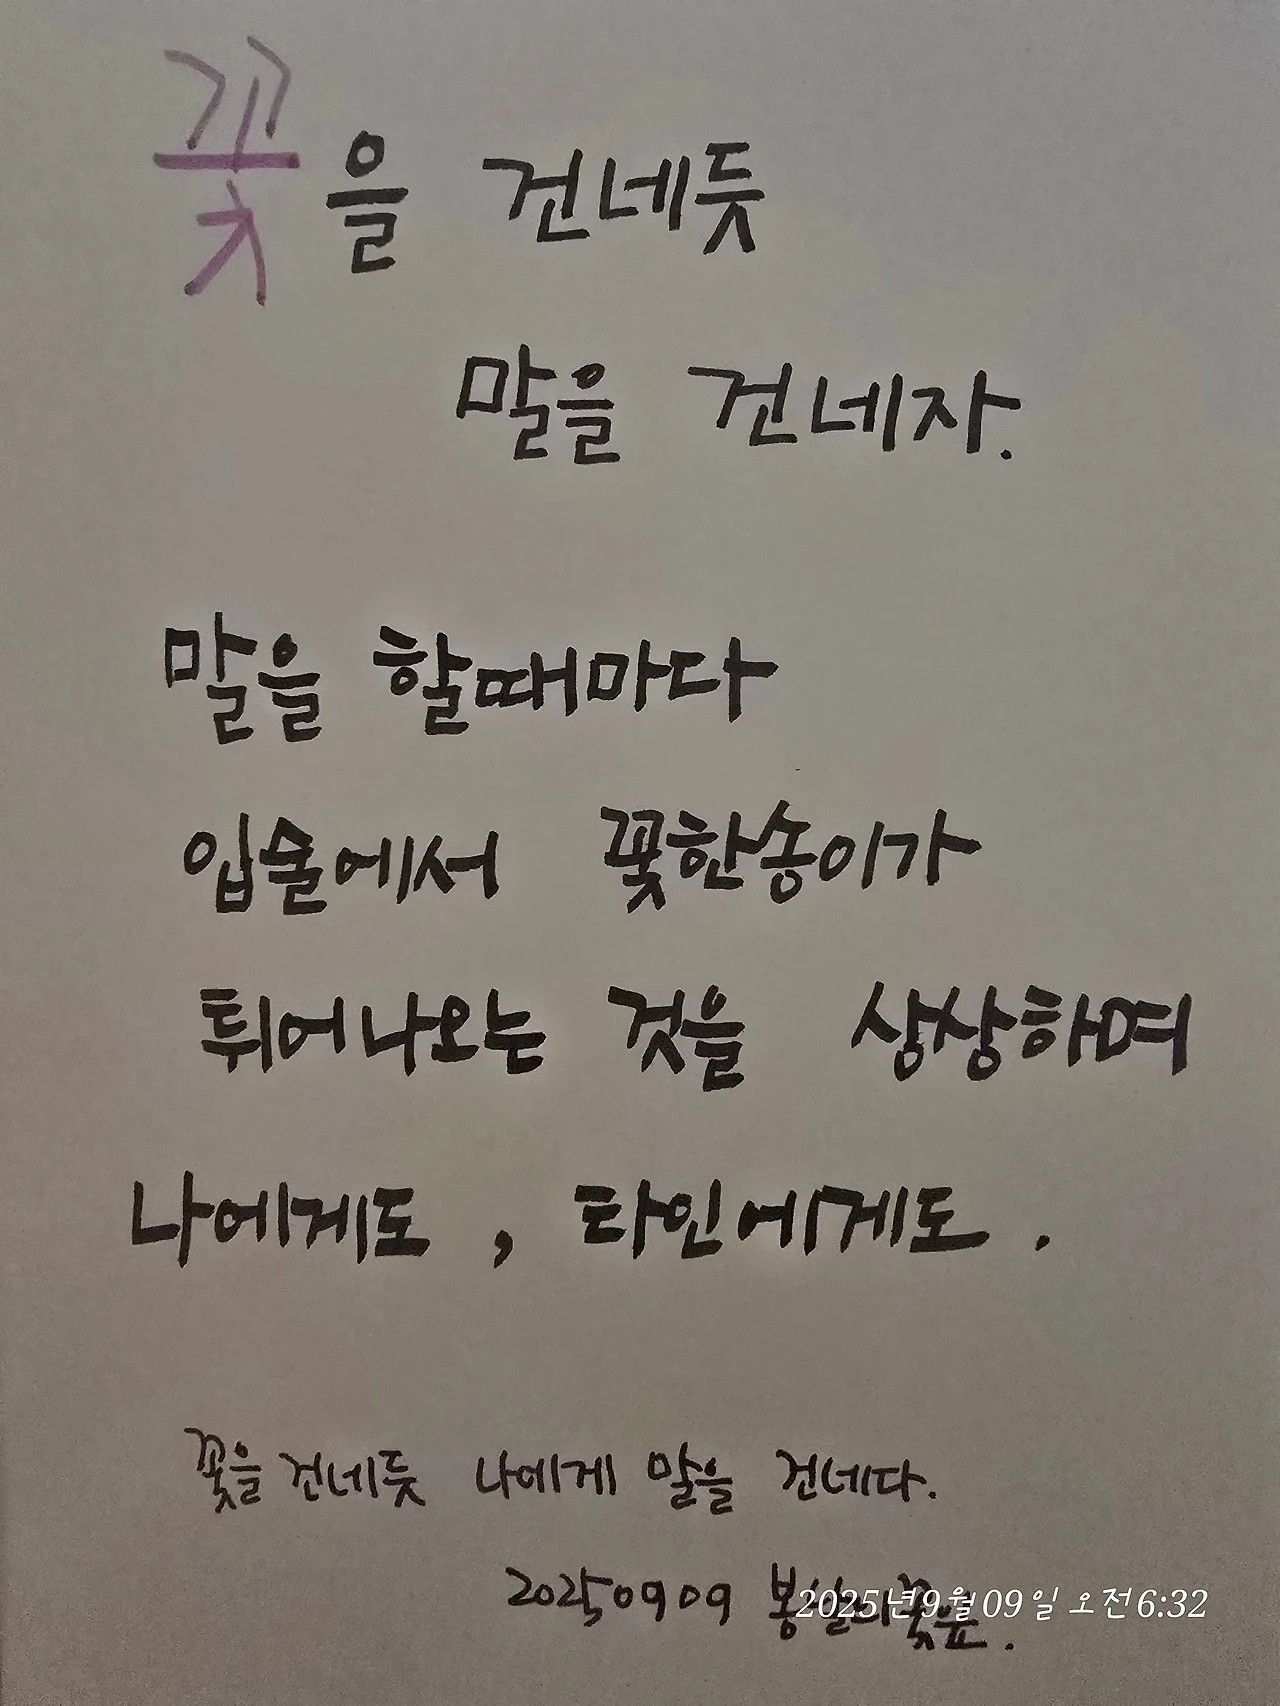 꽃을 건네듯
말을 건네자.
말을 할때마다
입술에서 꽃한송이가
튀어나오는 것을 상상하며
나에게도, 타인에게도.
꽃을 건네듯 나에게 말을 건네다.
20250909
2025년9월09일 오전6:32